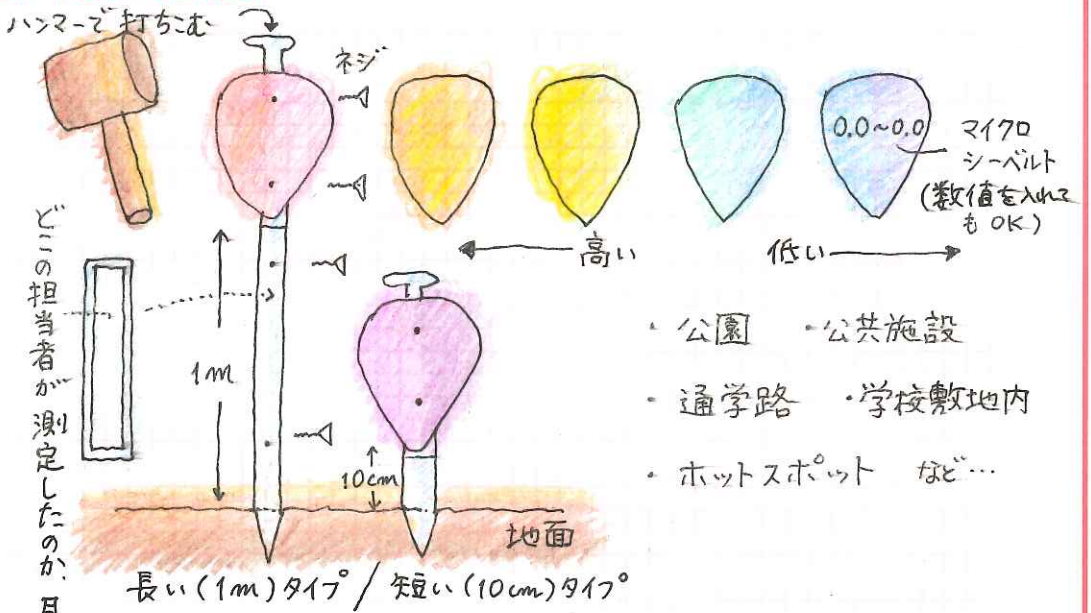 ハンマーで打ちこむ
ネジ
0.0~0.0
マイクロ
シーベルト
(数値を入れて
もOK)
高い
低い
どこの担当者が測定したのか、
1m
10cm
・公園 ・公共施設
・通学路 ・学校敷地内
・ホットスポット など…
地面
長い(1m)タイプ/短い(10cm)タイプ